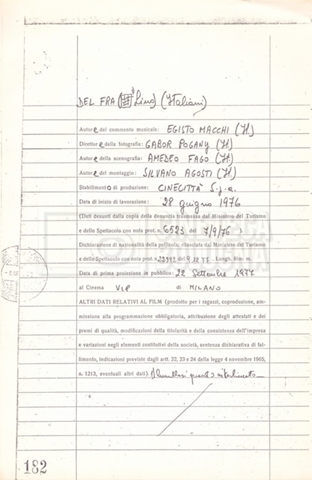 DEL FRA Lino (Italiani)
Autore del commento musicale: EGISTO MACCHI (It)
Direttore della fotografia: GABOR POGANY (It)
Autore della scenografia: AMEDEO FAGO (It)
Autore del montaggio: SILVANO AGOSTI (It)
Stabilimento di produzione: CINECITTÀ S.p.a.
Data di inizio di lavorazione: 28 giugno 1976
(Dati desunti dalla copia della denuncia trasmessa dal Ministero del Turismo
e dello Spettacolo con nota prot. n. 6523 del 7/9/76 ).
Dichiarazione di nazionalità della pellicola rilasciata dal Ministero del Turismo
e dello Spettacolo con nota prot. n. del Lungh. film m.
Data di prima proiezione in pubblico: 22 Settembre 1977
al Cinema VIP di MILANO
ALTRI DATI RELATIVI AL FILM (prodotto per i ragazzi, coproduzione, am-
missione alla programmazione obbligatoria, attribuzione degli attestati e dei
premi di qualità, modificazioni della titolarità e della consistenza dell'impresa
e variazioni negli elementi costitutivi della società, sentenza dichiarativa di fal-
limento, indicazioni previste dagli artt. 22, 23 e 24 della legge 4 novembre 1965,
n. 1213, eventuali altri dati):
182